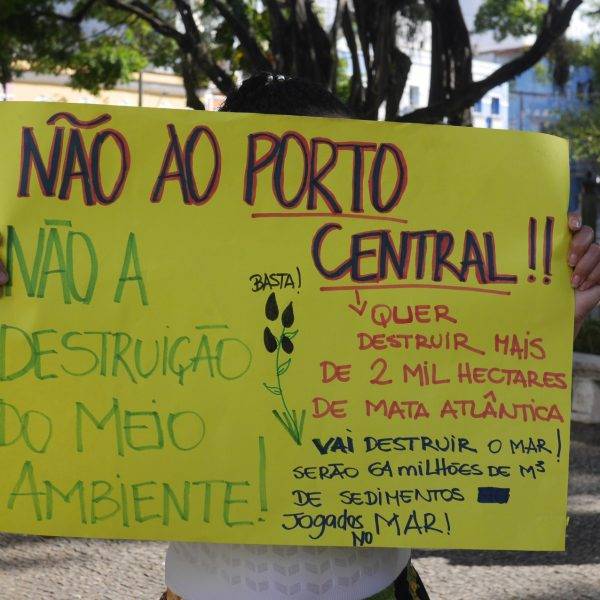 NÃO AO PORTO
CENTRAL!!
NÃO A
DESTRUIÇÃO
DO MEIO
AMBIENTE!
BASTA!
QUER
DESTRUIR MAIS
DE 2 MIL HECTARES
DE MATA ATLÂNTICA
VAI DESTRUIR O MAR!
SERÃO 64 MILHÕES DE M³
DE SEDIMENTOS
JOGADOS NO MAR!